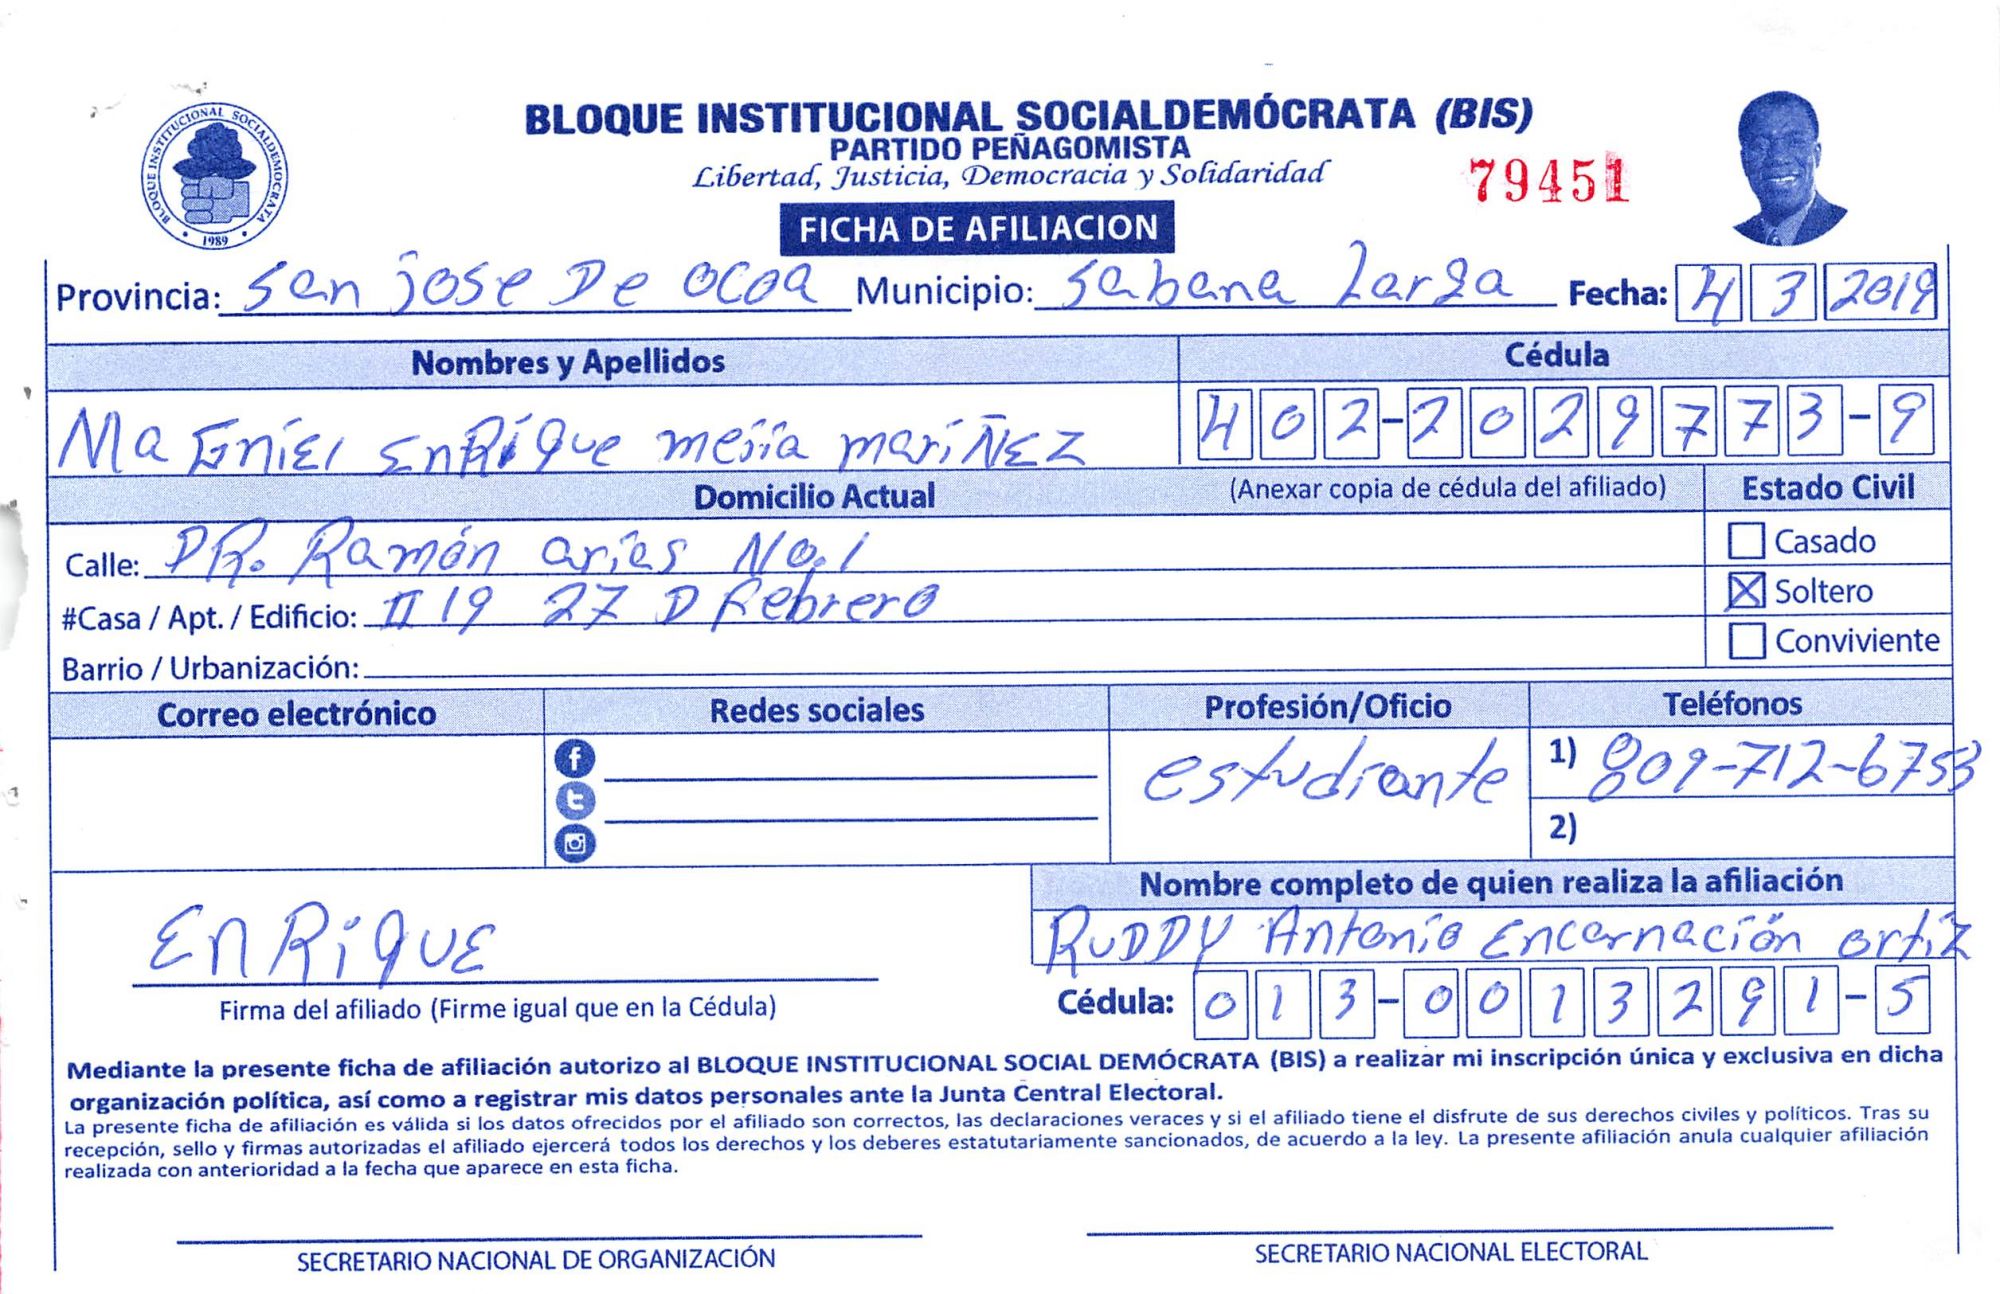 BLOQUE INSTITUCIONAL SOCIALDEMOCRATA
1989
BLOQUE INSTITUCIONAL SOCIALDEMÓCRATA (BIS)
PARTIDO PEÑAGOMISTA
Libertad, Justicia, Democracia y Solidaridad
79451
FICHA DE AFILIACION
Provincia: San jose De OCOA Municipio: Sabana Larga Fecha: 4 3 2019
Nombres y Apellidos Cédula
EnRique mejia mariÑEZ 402-2029773-9
Domicilio Actual (Anexar copia de cédula del afiliado) Estado Civil
Calle: DR. Ramón arias No.1 Casado
#Casa / Apt. / Edificio: II 19 27 D Febrero Soltero
Barrio / Urbanización: Conviviente
Correo electrónico Redes sociales Profesión/Oficio Teléfonos
estudiante 1) 809-712-6753
2)
Nombre completo de quien realiza la afiliación
EnRiQUE RuDDY Antonio Encarnación ortiz
Firma del afiliado (Firme igual que en la Cédula) Cédula: 013-0013291-5
Mediante la presente ficha de afiliación autorizo al BLOQUE INSTITUCIONAL SOCIAL DEMÓCRATA (BIS) a realizar mi inscripción única y exclusiva en dicha
organización política, así como a registrar mis datos personales ante la Junta Central Electoral.
La presente ficha de afiliación es válida si los datos ofrecidos por el afiliado son correctos, las declaraciones veraces y si el afiliado tiene el disfrute de sus derechos civiles y políticos. Tras su
recepción, sello y firmas autorizadas el afiliado ejercerá todos los derechos y los deberes estatutariamente sancionados, de acuerdo a la ley. La presente afiliación anula cualquier afiliación
realizada con anterioridad a la fecha que aparece en esta ficha.
SECRETARIO NACIONAL DE ORGANIZACIÓN SECRETARIO NACIONAL ELECTORAL